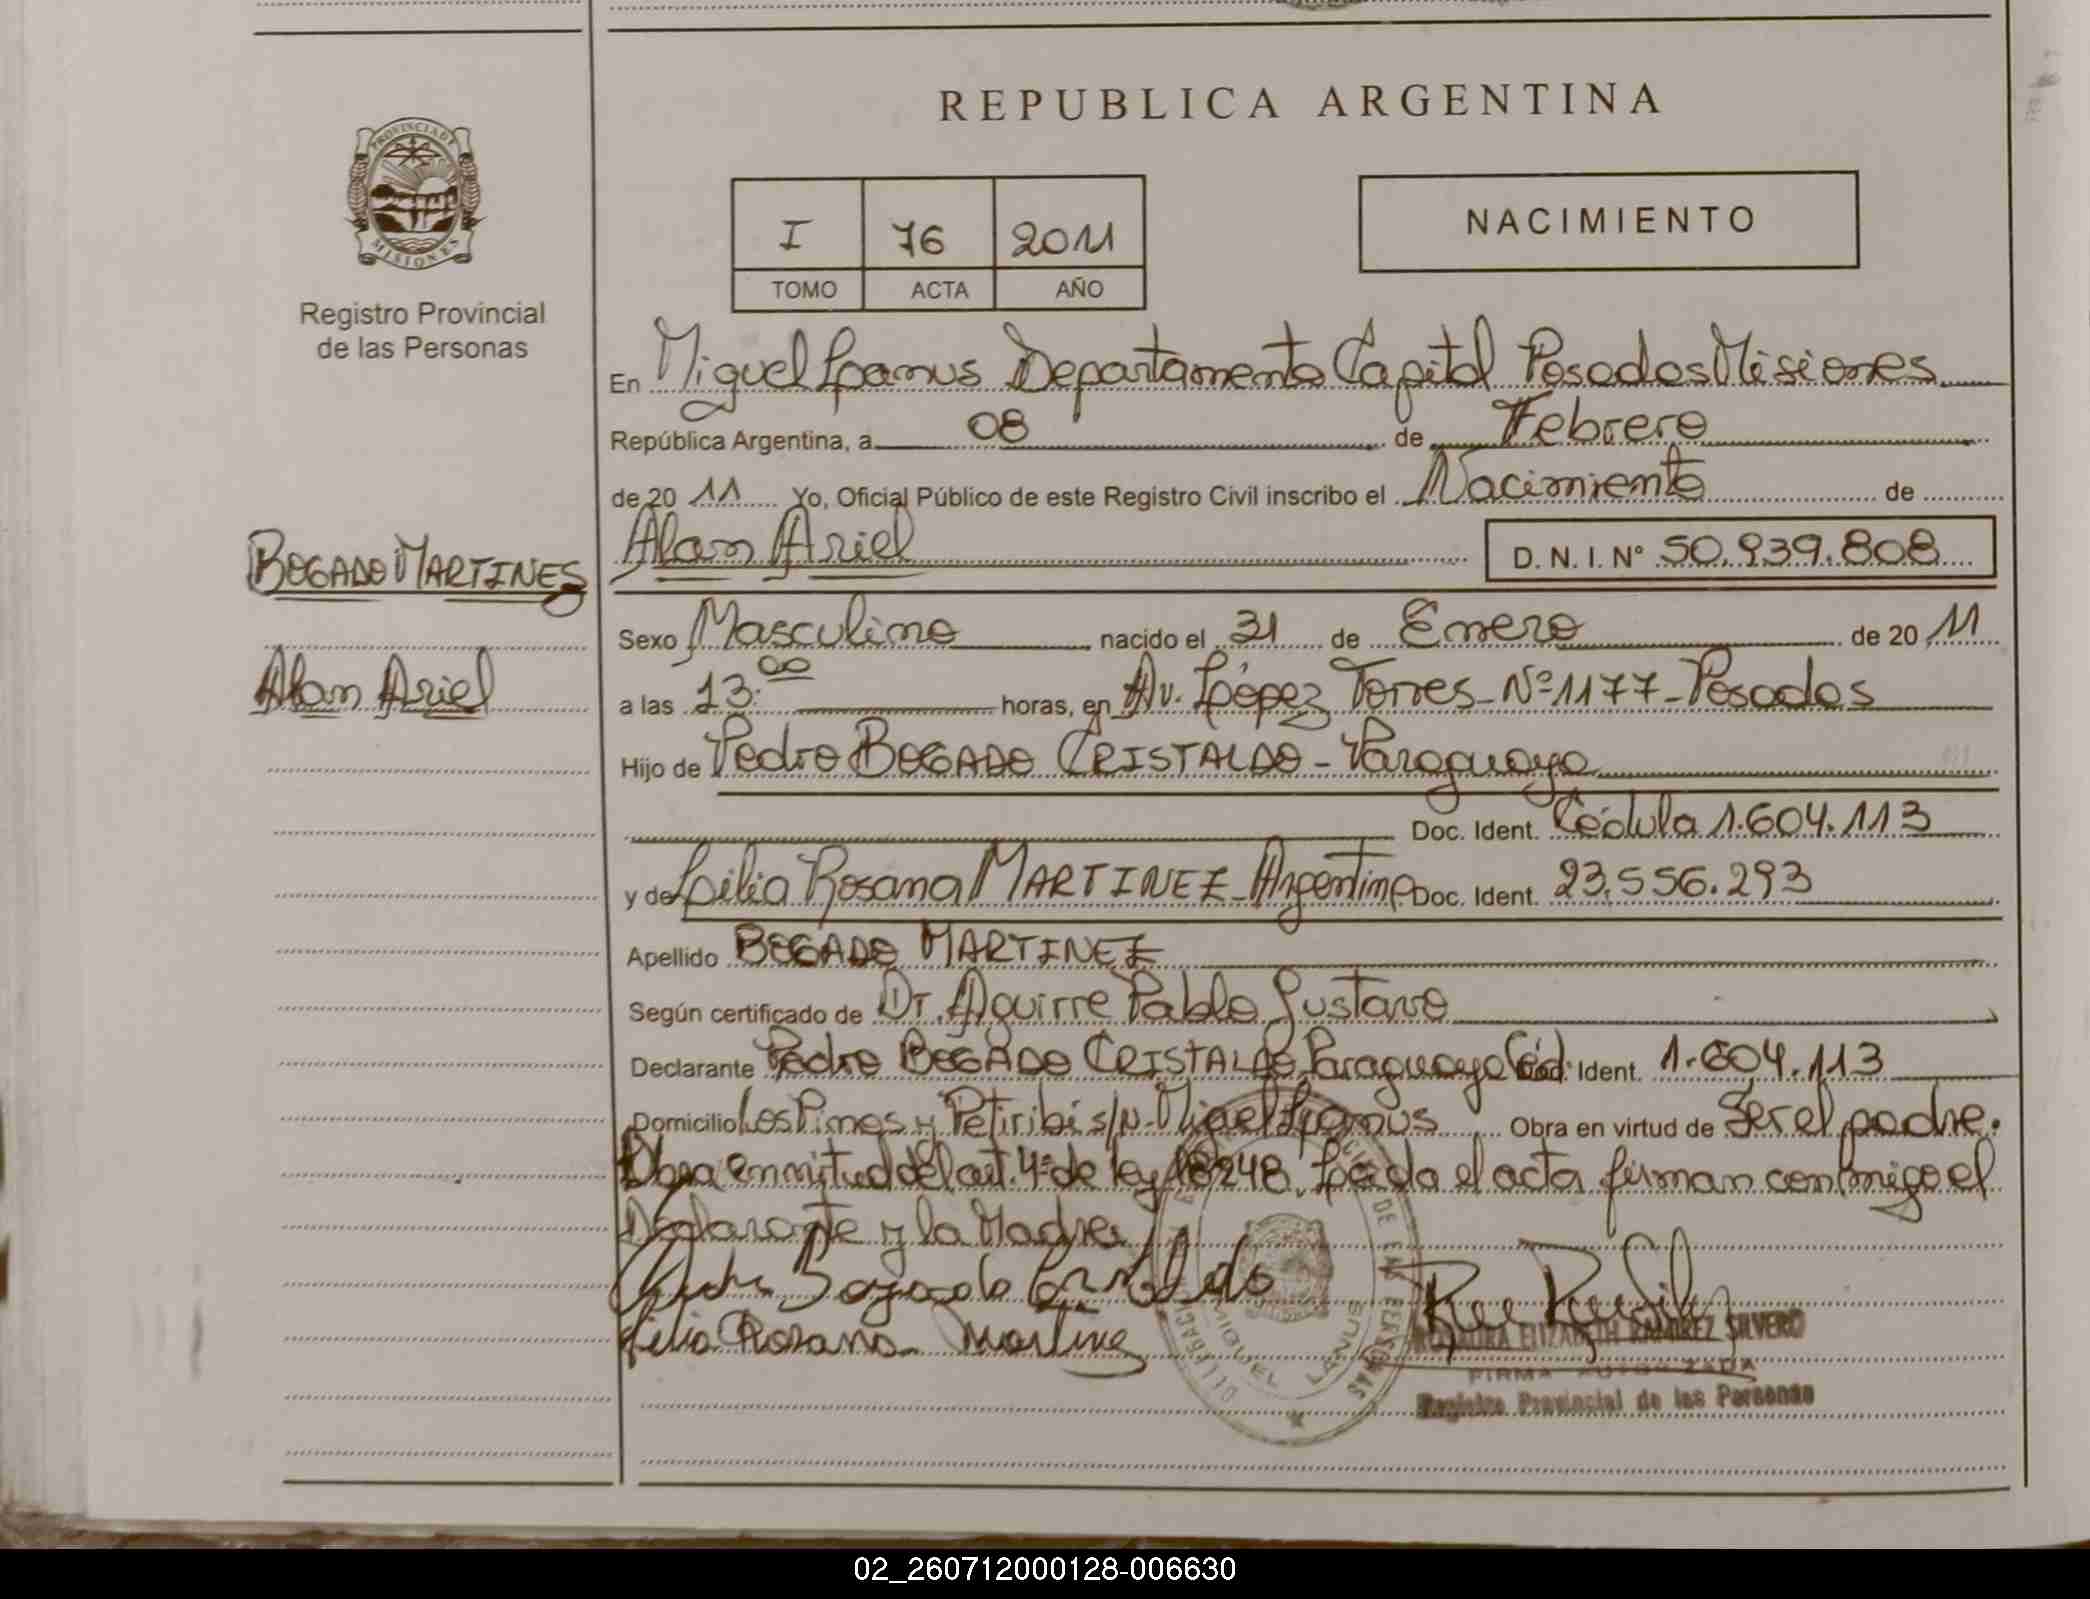 PROVINCIA DE
MISIONES
Registro Provincial
de las Personas
BOGADO MARTINES
Alan Ariel
REPUBLICA ARGENTINA
I 76 2011
TOMO ACTA AÑO
NACIMIENTO
En Miguel Lanus Departamento Capital Posadas Misiones
República Argentina, a 08 de Febrero
de 20 11 Yo, Oficial Público de este Registro Civil inscribo el Nacimiento de
Alan Ariel D. N. I. Nº 50.939.808
Sexo Masculino nacido el 31 de Enero de 20 11
a las 13:00 horas, en Av. López Torres - Nº 1177 - Posadas
Hijo de Pedro BOGADO CRISTALDO - Paraguayo
Doc. Ident. Cédula 1.604.113
y de Lilia Rosana MARTINEZ - Argentina Doc. Ident. 23.556.293
Apellido BOGADO MARTINEZ
Según certificado de Dr. Aguirre Pablo Gustavo
Declarante Pedro BOGADO CRISTALDO, Paraguayo Céd. Ident. 1.604.113
Domicilio Los Pinos y Petiribi s/n - Miguel Lanus Obra en virtud de Ser el padre.
Obra en virtud del art. 4º de ley 18248. Leída el acta firman conmigo el
Declarante y la Madre
Pedro Bogado Cristaldo
Lilia Rosana Martinez
ELIZABETH RAMIREZ SILVERO
FIRMA AUTORIZADA
Registro Provincial de las Personas
02_260712000128-006630